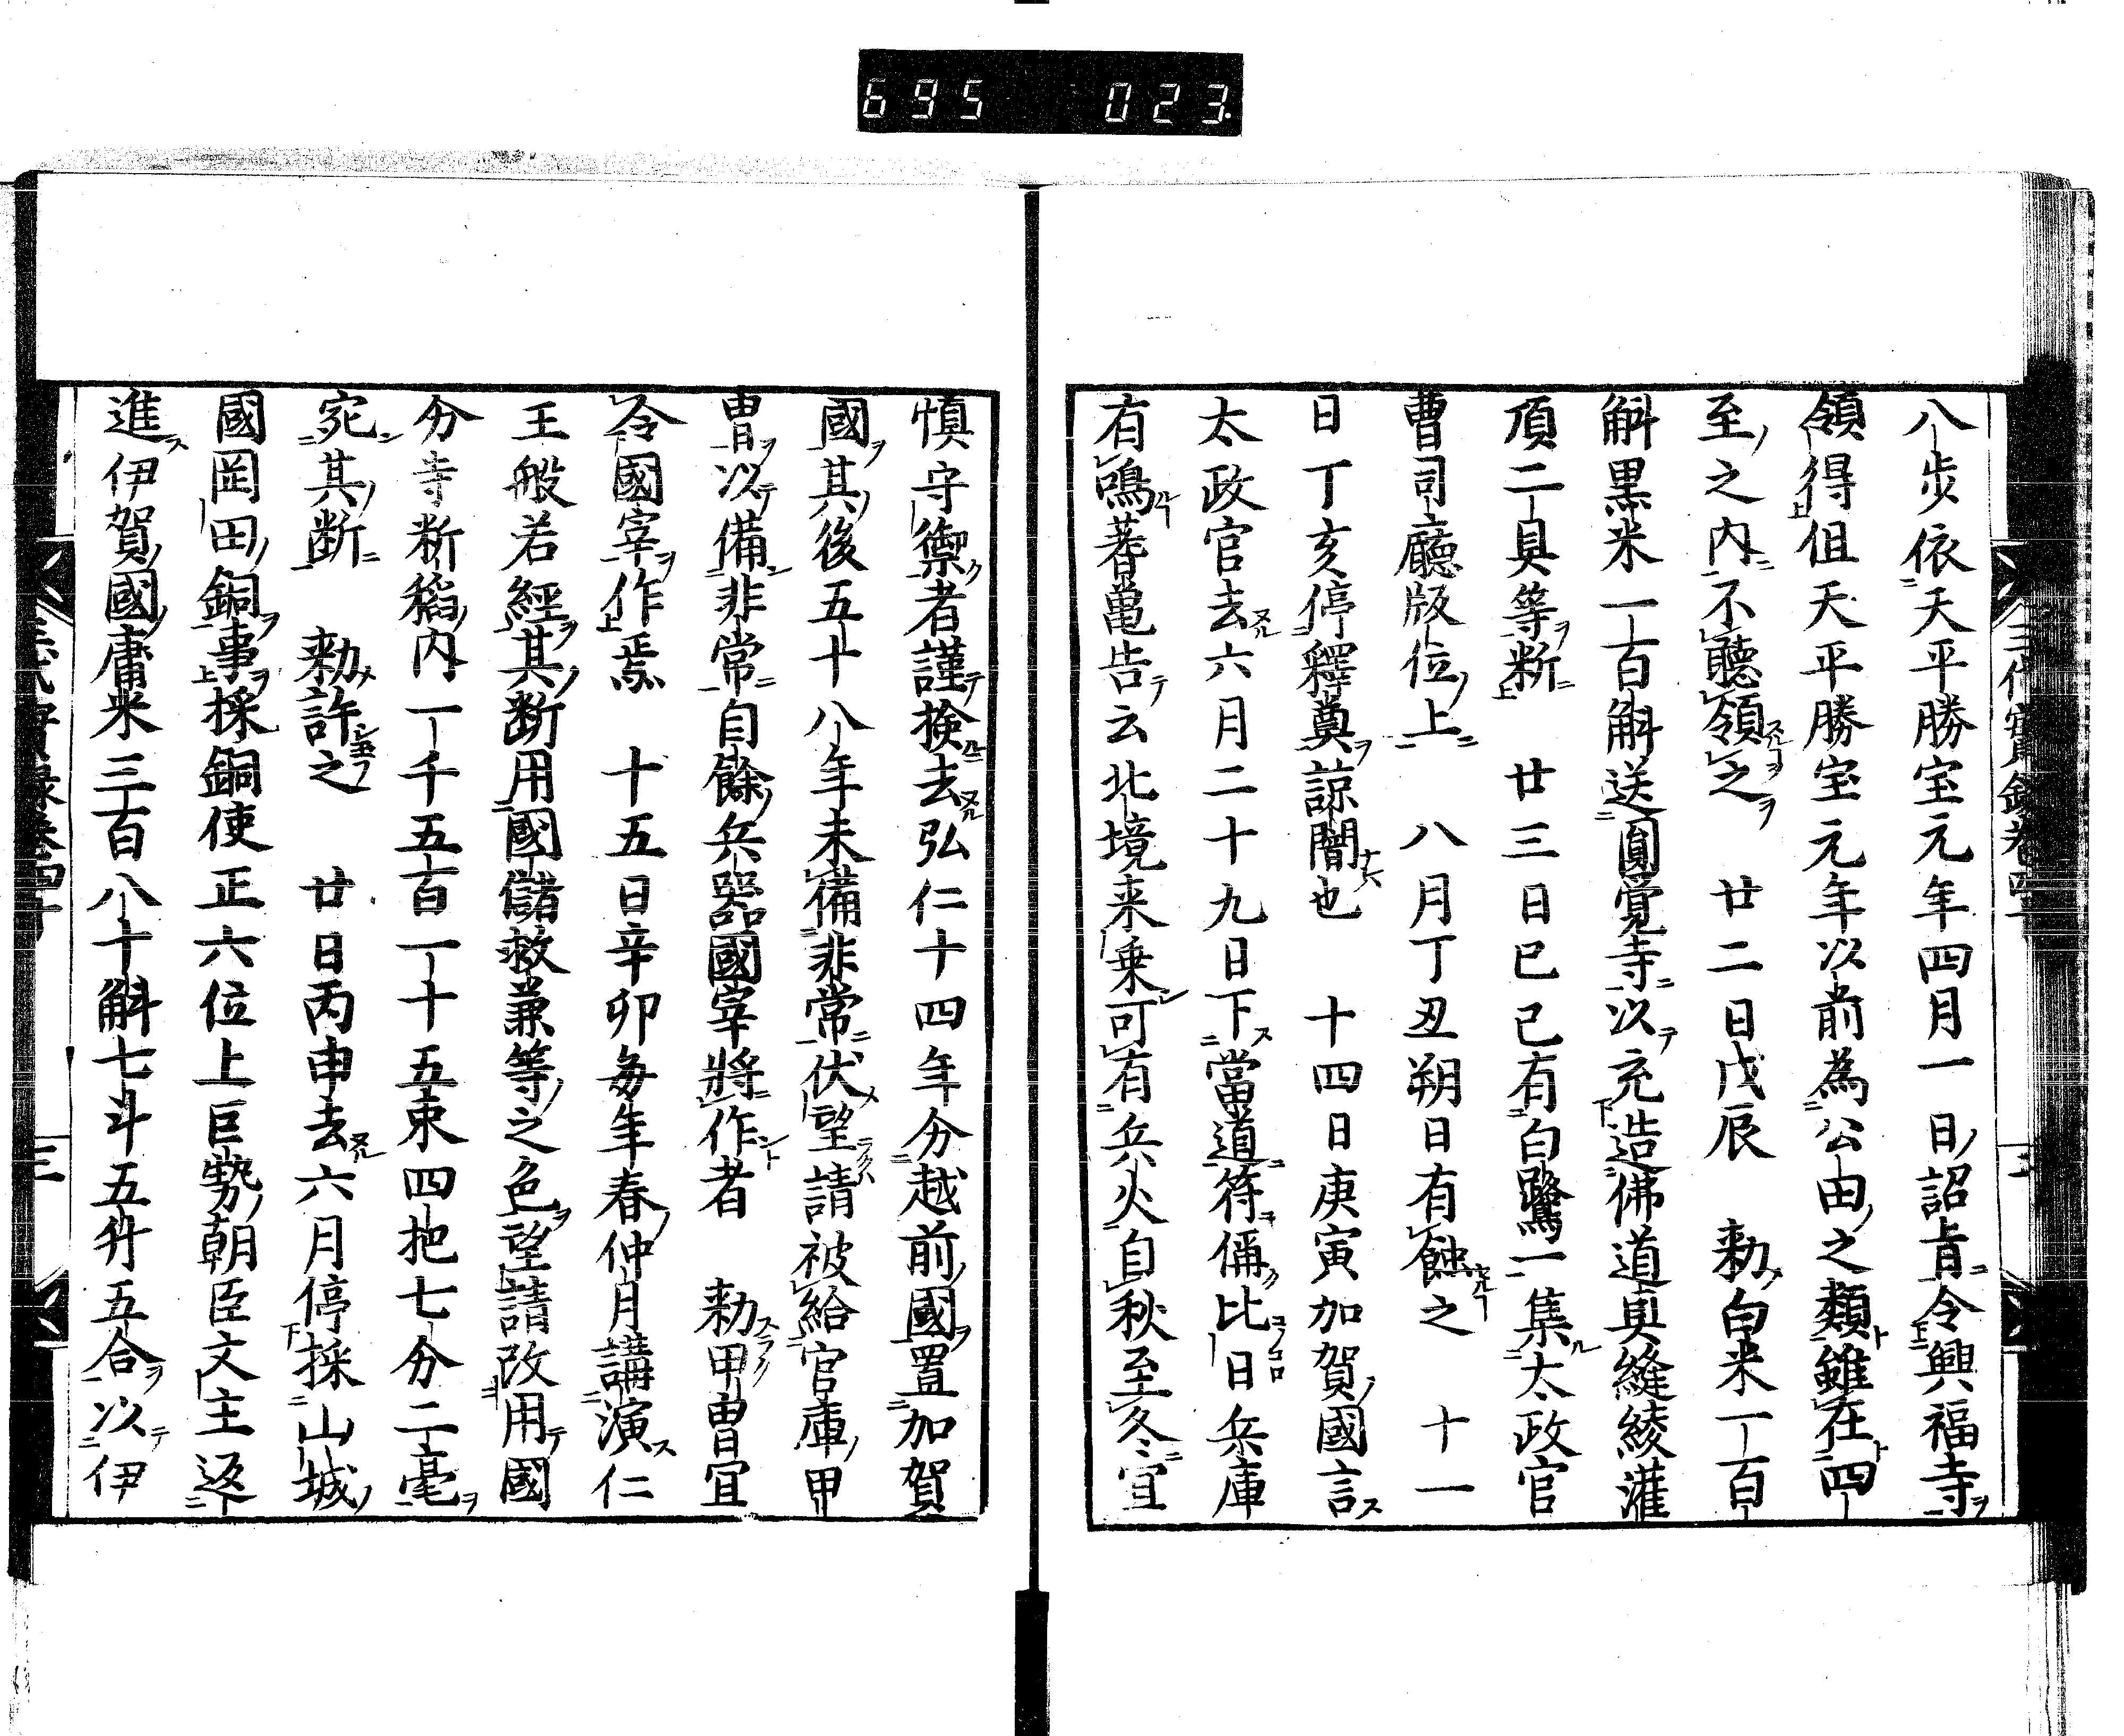 695 023
八歩依天平勝宝元年四月一日詔旨令興福寺
領得但天平勝宝元年以前為公田之類雖在四
至之内不聴領之 廿二日戊辰 勅白米一百
斛黒米一百斛送圓覚寺以充造佛道具縫綾灌
頂二具等断 廿三日已已有白鷺一集太政官
曹司廳版位上 八月丁丑朔日有蝕之 十一
日丁亥停釋奠諒闇也 十四日庚寅加賀國言
太政官去六月二十九日下當道符偁比日兵庫
有鳴蓍亀告云北境来乗可有兵火自秋至冬宜
慎守禦者謹検去弘仁十四年分越前國置加賀
國其後五十八年未備非常伏望請被給官庫甲
冑以備非常自餘兵器國宰將作者 勅甲冑宜
令國宰作焉 十五日辛卯毎年春仲月講演仁
王般若經其断用國儲救兼等之色望請改用國
分寺断稲内一千五百一十五束四把七分二毫
宛其断 勅許之 廿日丙申去六月停採山城
國岡田銅事採銅使正六位上巨勢朝臣文主返
進伊賀國庸米三百八十斛七斗五升五合以伊
三代實録巻四十
三